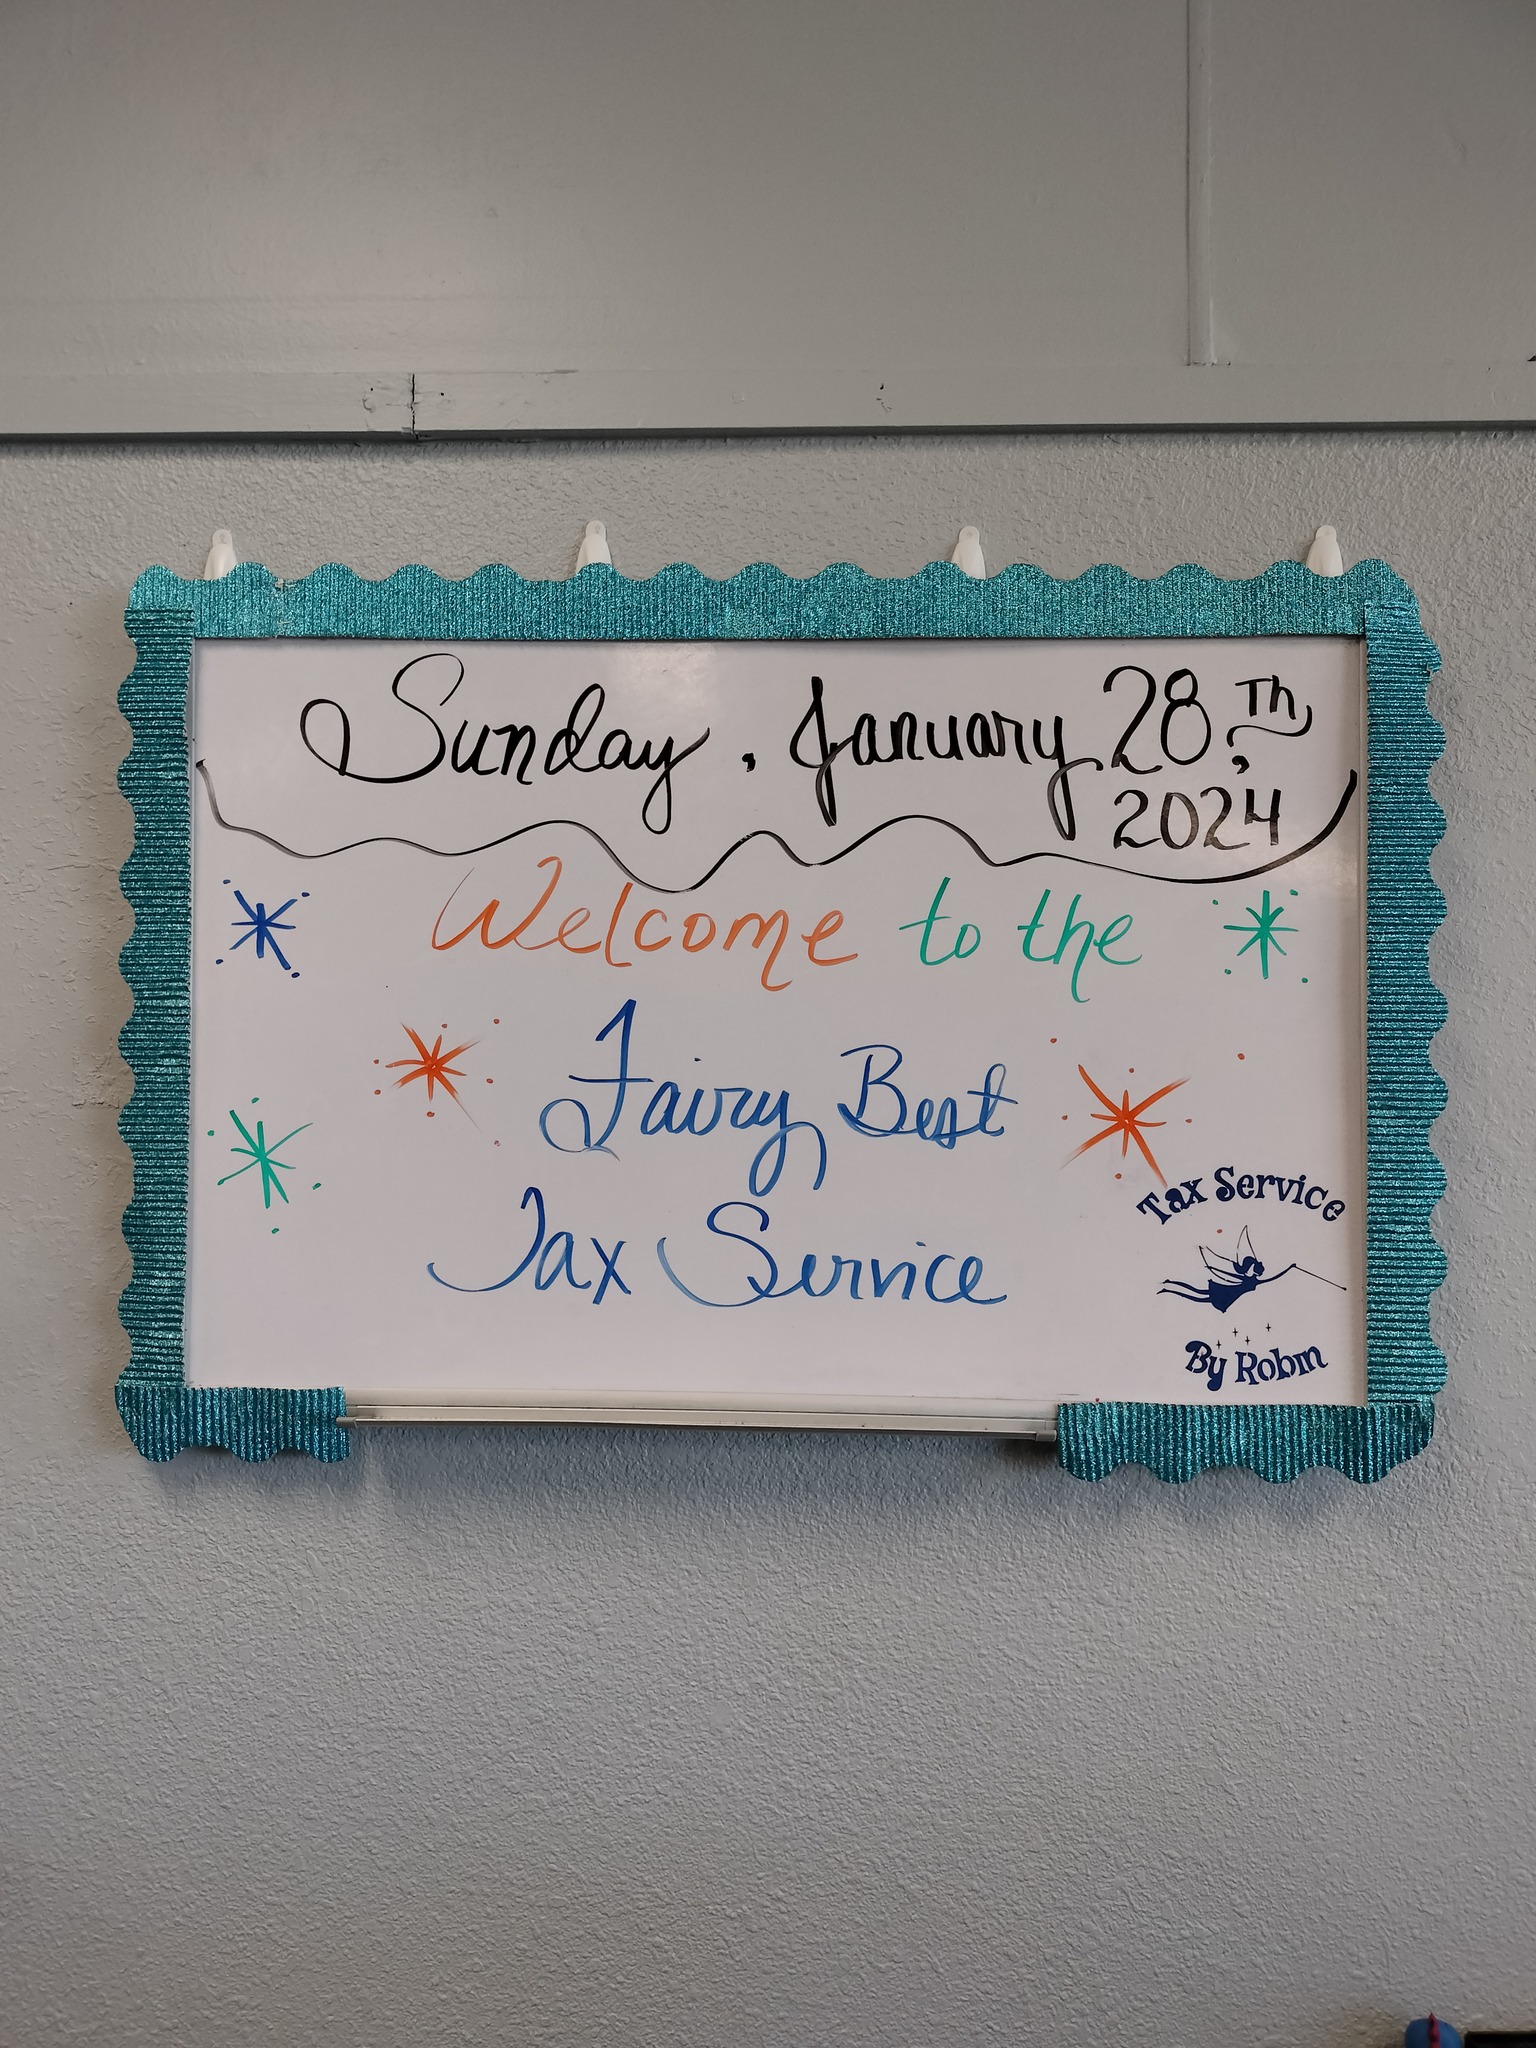 Sunday, January 28th,
2024
Welcome to the
Fairy Best
Tax Service
Tax Service
By Robin